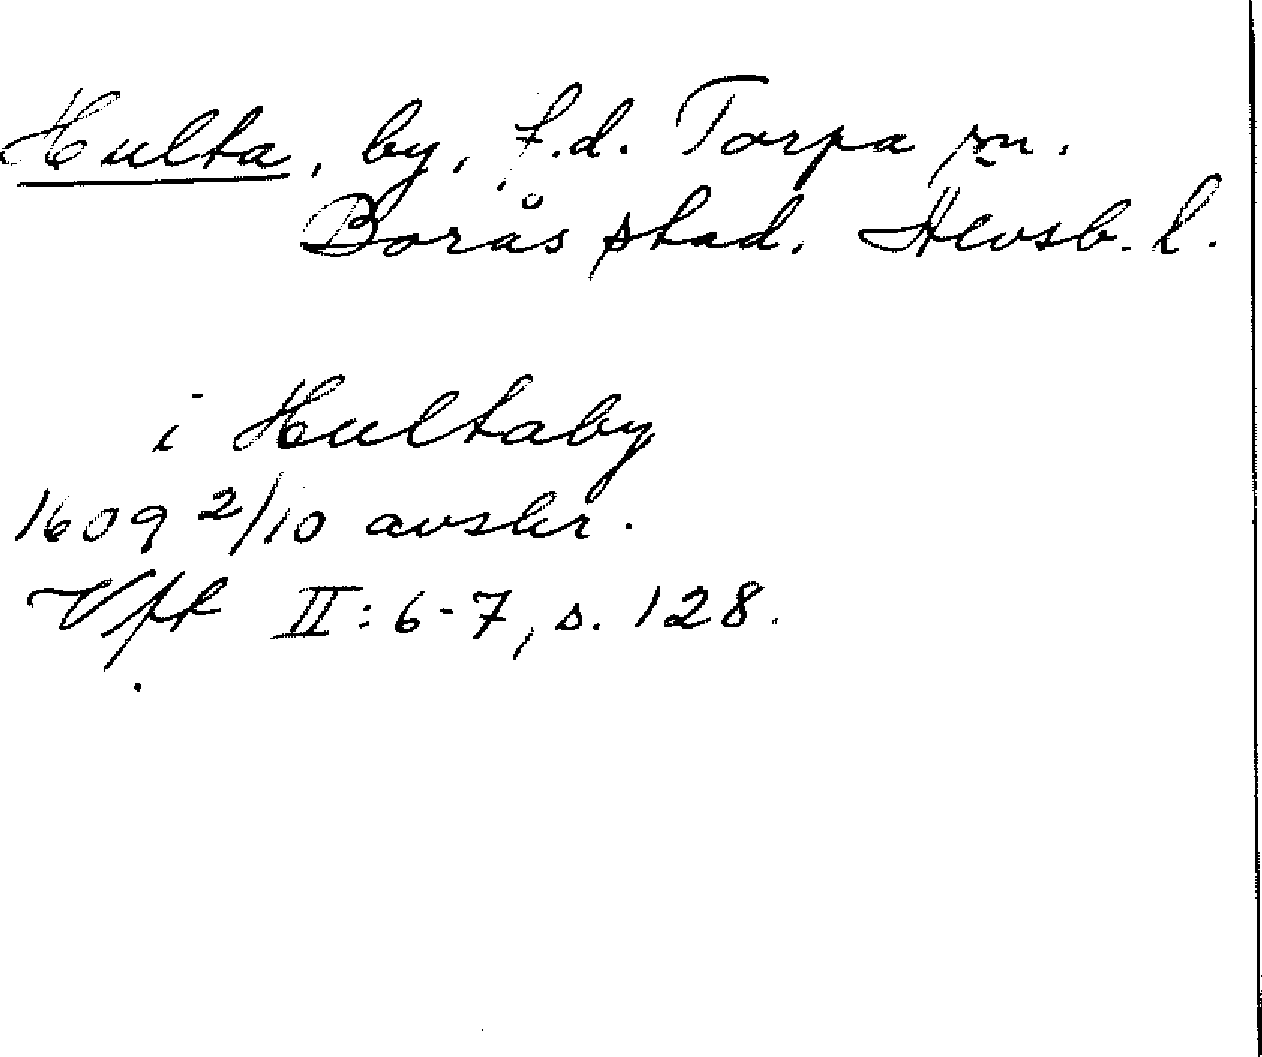 Hulta, by, f.d. Torpa sn.
Borås stad. Älvsb. l.
i Hultaby
1609 2/10 avskr.
Vft II: 6-7, s. 128.